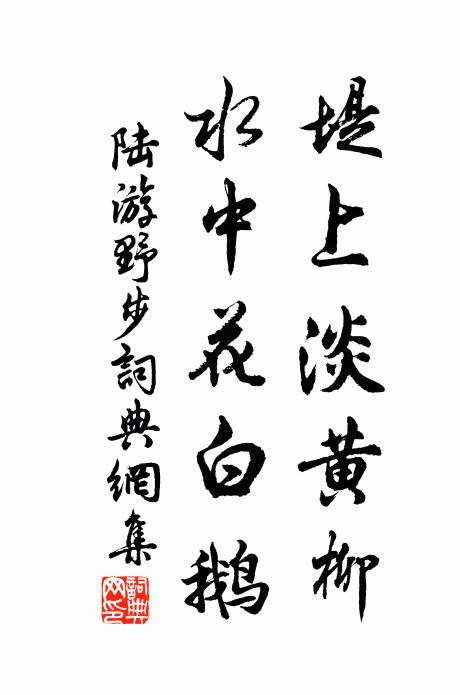 堤上淡黄柳
水中花白鹅
陆游野步词典網集
詞典网印